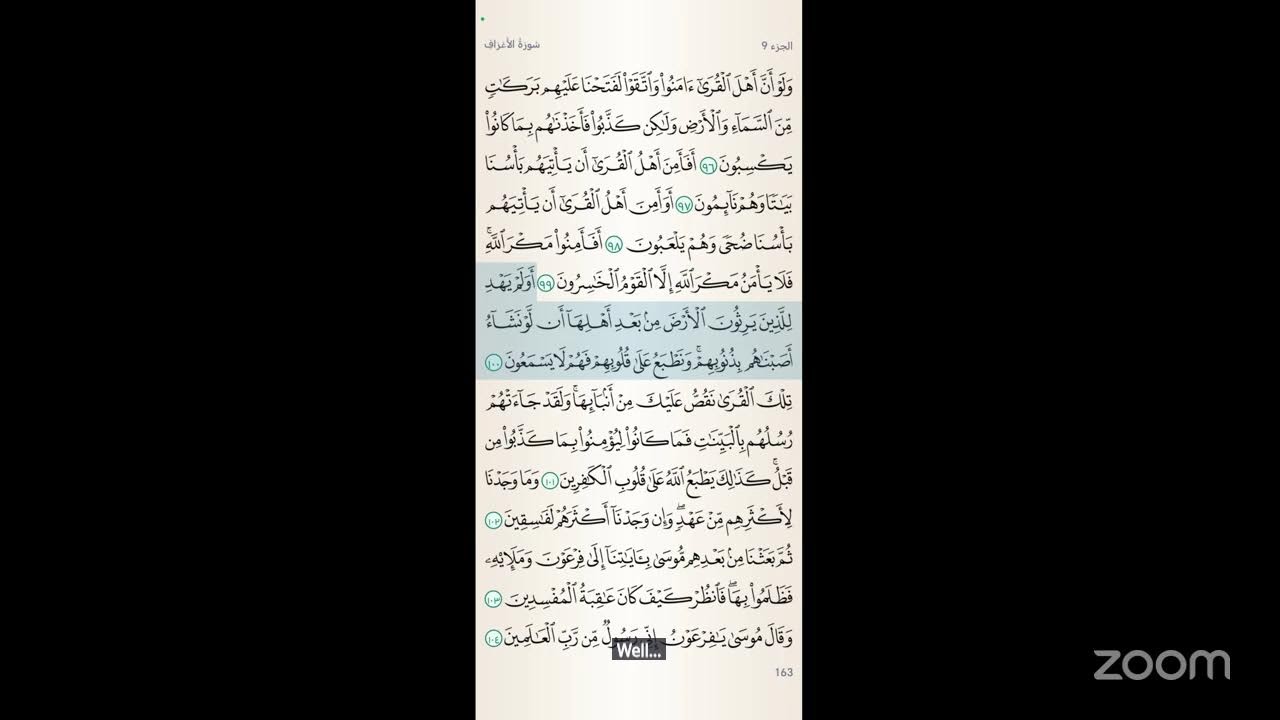 سُورَةُ الأَعْرَافِ
الجزء 9
وَلَوْ أَنَّ أَهْلَ ٱلْقُرَىٰٓ ءَامَنُوا۟ وَٱتَّقَوْا۟ لَفَتَحْنَا عَلَيْهِم بَرَكَـٰتٍ
مِّنَ ٱلسَّمَآءِ وَٱلْأَرْضِ وَلَـٰكِن كَذَّبُوا۟ فَأَخَذْنَـٰهُم بِمَا كَانُوا۟
يَكْسِبُونَ ٩٦ أَفَأَمِنَ أَهْلُ ٱلْقُرَىٰٓ أَن يَأْتِيَهُم بَأْسُنَا
بَيَـٰتًا وَهُمْ نَآئِمُونَ ٩٧ أَوَأَمِنَ أَهْلُ ٱلْقُرَىٰٓ أَن يَأْتِيَهُم
بَأْسُنَا ضُحًى وَهُمْ يَلْعَبُونَ ٩٨ أَفَأَمِنُوا۟ مَكْرَ ٱللَّهِ ۚ
فَلَا يَأْمَنُ مَكْرَ ٱللَّهِ إِلَّا ٱلْقَوْمُ ٱلْخَـٰسِرُونَ ٩٩ أَوَلَمْ يَهْدِ
لِلَّذِينَ يَرِثُونَ ٱلْأَرْضَ مِنۢ بَعْدِ أَهْلِهَآ أَن لَّوْ نَشَآءُ
أَصَبْنَـٰهُم بِذُنُوبِهِمْ ۚ وَنَطْبَعُ عَلَىٰ قُلُوبِهِمْ فَهُمْ لَا يَسْمَعُونَ ١٠٠
تِلْكَ ٱلْقُرَىٰ نَقُصُّ عَلَيْكَ مِنْ أَنۢبَآئِهَا ۚ وَلَقَدْ جَآءَتْهُمْ
رُسُلُهُم بِٱلْبَيِّنَـٰتِ فَمَا كَانُوا۟ لِيُؤْمِنُوا۟ بِمَا كَذَّبُوا۟ مِن
قَبْلُ ۚ كَذَٰلِكَ يَطْبَعُ ٱللَّهُ عَلَىٰ قُلُوبِ ٱلْكَـٰفِرِينَ ١٠١ وَمَا وَجَدْنَا
لِأَكْثَرِهِم مِّنْ عَهْدٍ ۖ وَإِن وَجَدْنَآ أَكْثَرَهُمْ لَفَـٰسِقِينَ ١٠٢
ثُمَّ بَعَثْنَا مِنۢ بَعْدِهِم مُّوسَىٰ بِـَٔايَـٰتِنَآ إِلَىٰ فِرْعَوْنَ وَمَلَإِي۟هِۦ
فَظَلَمُوا۟ بِهَا ۖ فَٱنظُرْ كَيْفَ كَانَ عَـٰقِبَةُ ٱلْمُفْسِدِينَ ١٠٣
وَقَالَ مُوسَىٰ يَـٰفِرْعَوْنُ إِنِّى رَسُولٌ مِّن رَّبِّ ٱلْعَـٰلَمِينَ ١٠٤
Well...
163
zoom